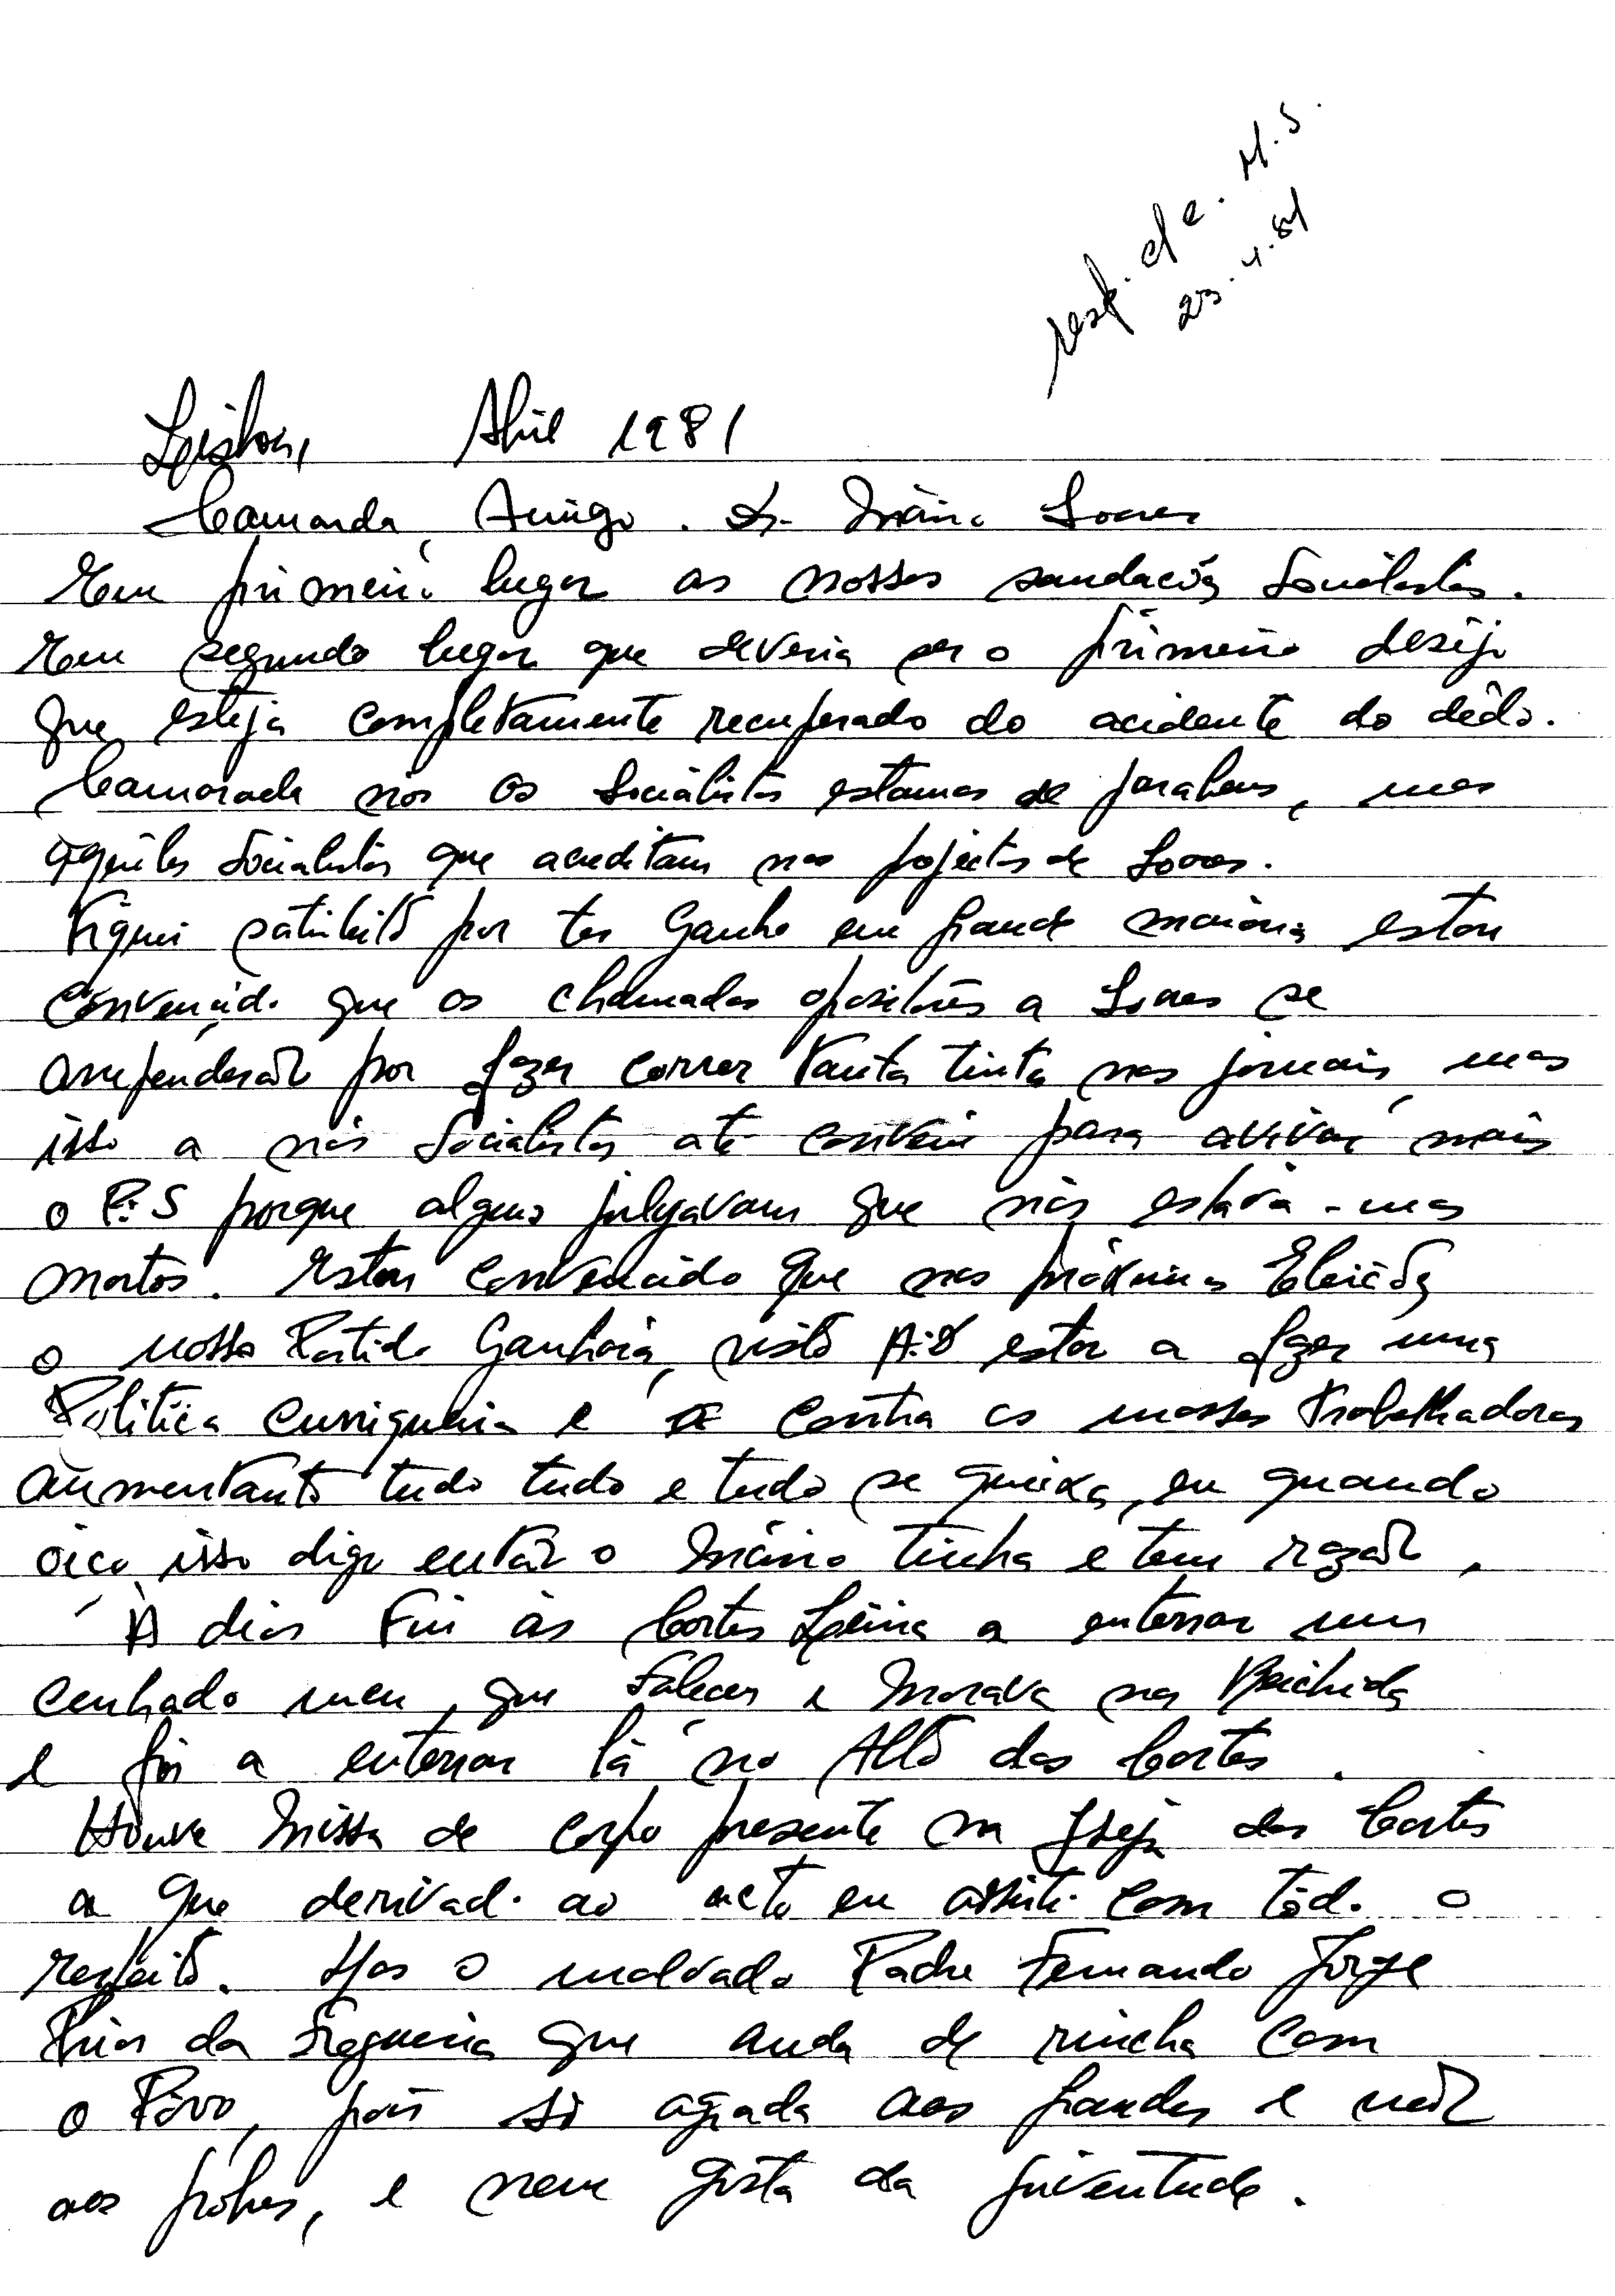 resp. de. M.S.
23.4.81
Lisboa, Abril 1981
Camarada, Amigo. Dr. Mário Soares
Em primeiro lugar as nossas saudacões Socialistas.
Em segundo lugar que deveria ser o primeiro desejo
que esteja completamente recuperado do acidente do dêdo.
Camarada nós os Socialistas estamos de parabens, mas
aquêles Socialistas que acreditam nos projectos de Soares.
Fiquei satisfeito por ter Ganho em grande maioria, estou
convencido que os chamados opositores a Soares se
arrependerão por fazer correr tanta tinta nos jornais, mas
isso a nós Socialistas até convém para avivar mais
o P.S porque alguns julgavam que nós estáva-mos
mortos. Estou convencido que nas próximas Eleicões
o nosso Partido Ganhará, visto A.D estar a fazer uma
Politica e contra as massas trabalhadoras
aumentanto tudo tudo e tudo se queixa, eu quando
oico isso digo então o Mário tinha e tem razão.
À dias Fui ás Cortes Leiria a enterrar um
cunhado meu, que Faleceu e Morava na
e foi a enterrar lá no Alto das Cortes.
Houve Missa de corpo presente na Igreja das Cortes
a que derivado ao acto eu assisti com tôdo o
respeito. Mas o malvado Padre Fernando Jorge
Prior da Freguesia que anda de rincha com
o Pôvo, pois só agrada aos grandes e não
aos pobres, e nem gosta da juventude.